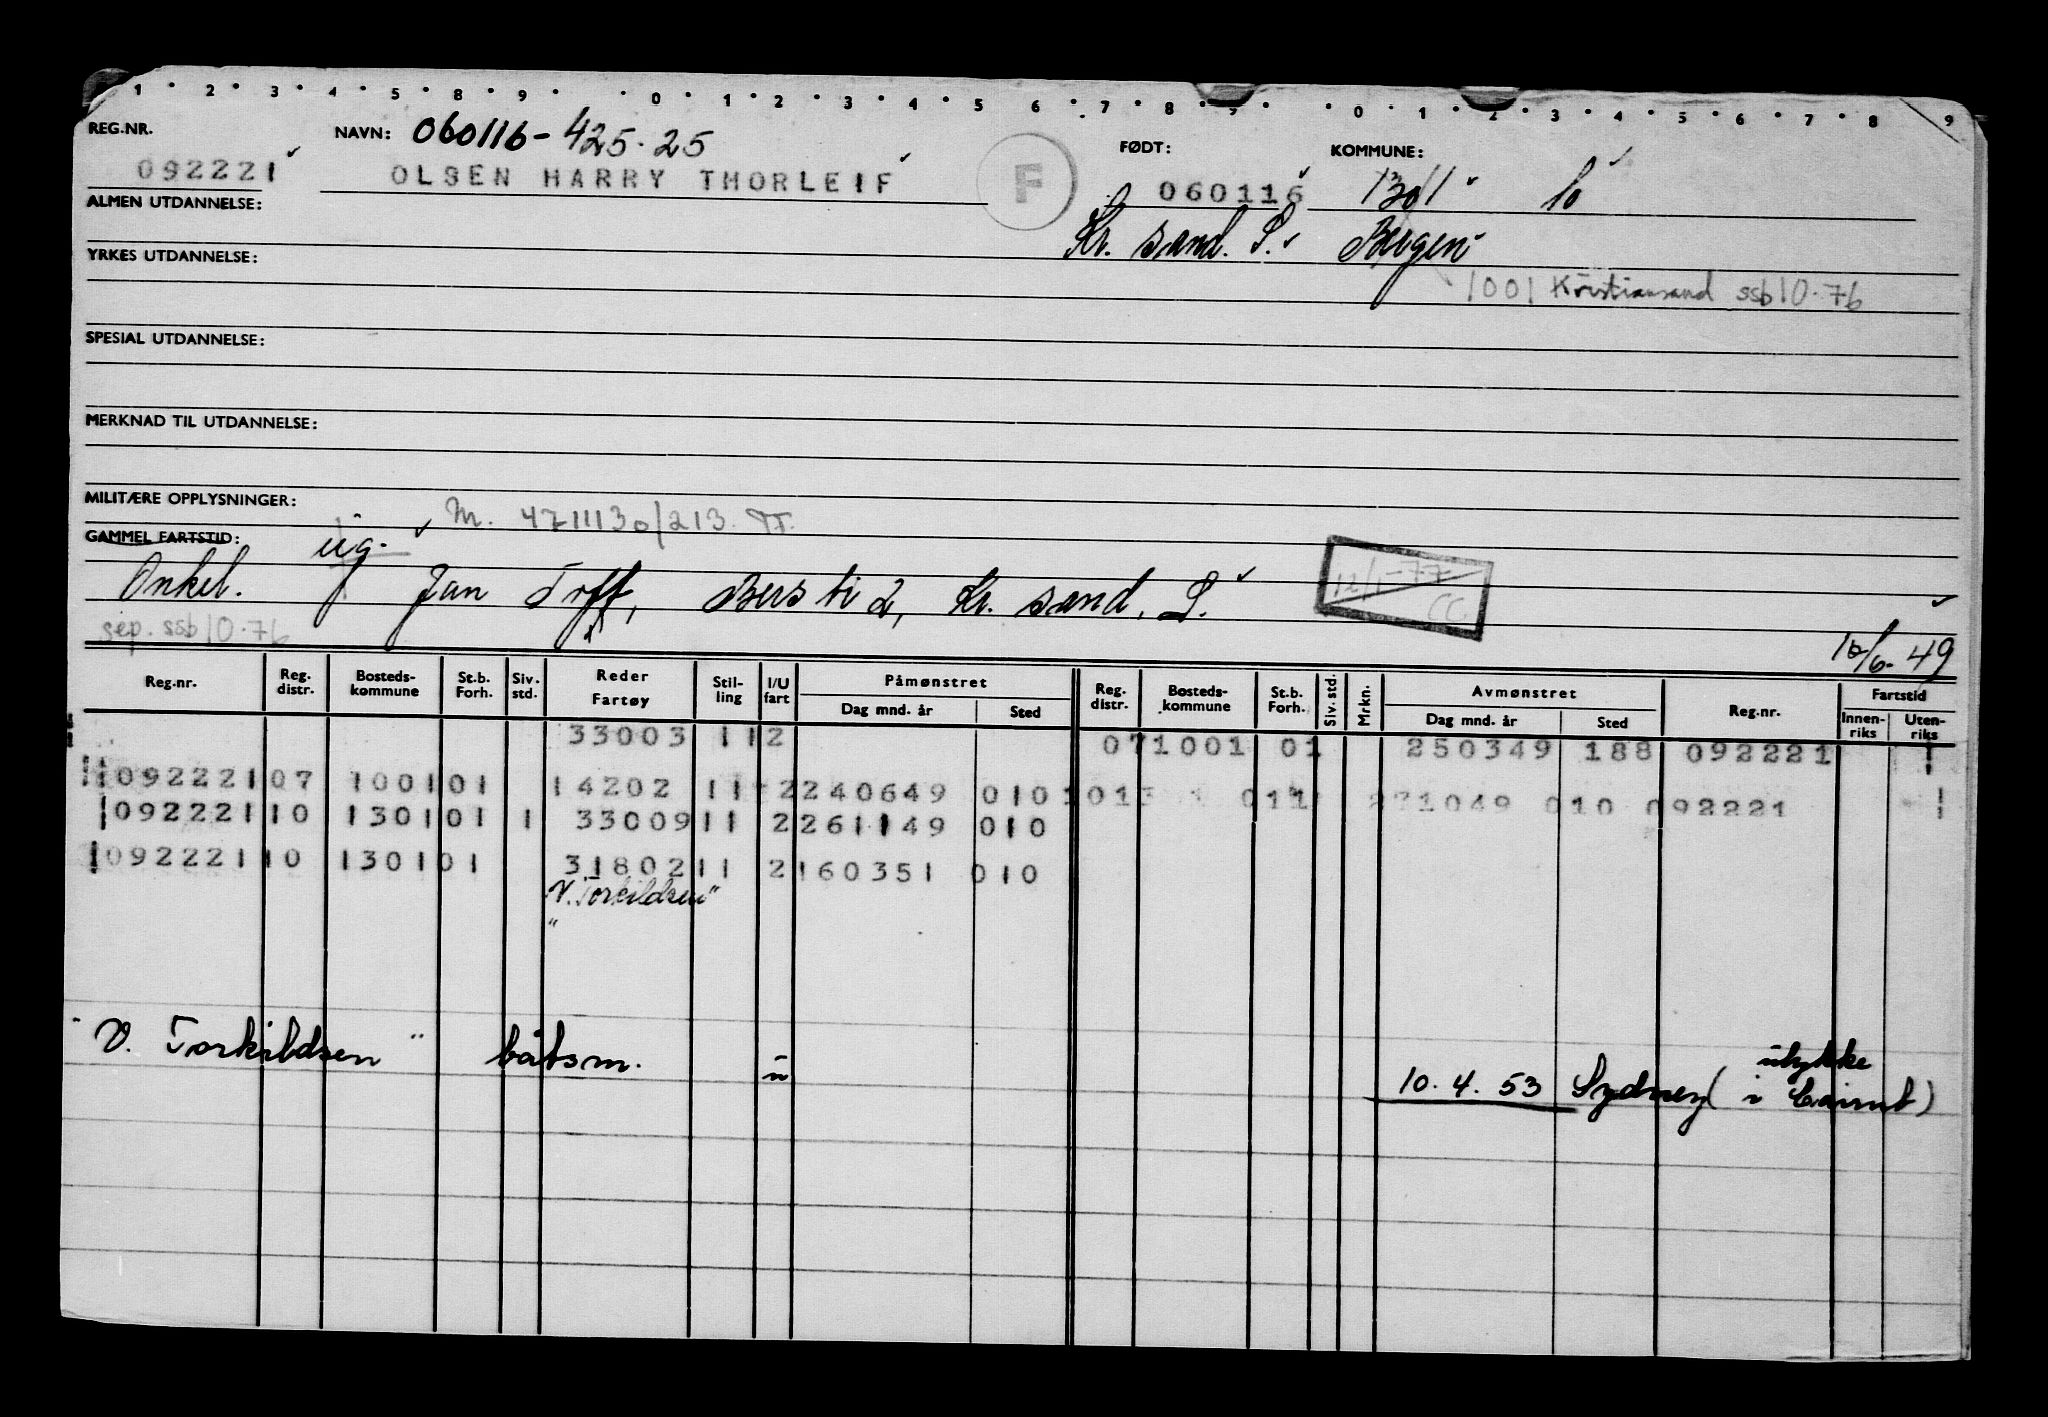 1 2 3 4 5 8 9 0 1 2 3 4 5 6 7 8 9 0 1 2 3 4 5 6 7 8 9
REG.NR. NAVN: 060116-425.25 FØDT: KOMMUNE:
092221 OLSEN HARRY THORLEIF F 060116 1301 10
ALMEN UTDANNELSE: Kr. sand. S. Bergen
YRKES UTDANNELSE: 1001 Kristiansand ssb 10.76
SPESIAL UTDANNELSE:
MERKNAD TIL UTDANNELSE:
MILITÆRE OPPLYSNINGER: M. 471113o/213.
GAMMEL FARTSTID: ug.
Onkel. Jan Toft, Bersti 2, Kr. sand. S. 12/1-77 CC
sep. ssb 10.76 10/6-49
Reg.nr. Reg. distr. Bosteds- kommune St.b. Forh. Siv. std. Reder Fartøy Stil- ling I/U fart Påmønstret Reg. distr. Bosteds- kommune St.b. Forh. Siv. std. Mrkn. Avmønstret Reg.nr. Fartstid
Dag mnd. år Sted Dag mnd. år Sted Innen- riks Uten- riks
33003 11 2 07 1001 01 250349 188 092221 1
092221 07 1001 01 14202 11 2 240649 010 10 13 1 01 1 271049 010 092221 1
092221 10 1301 01 1 33009 11 2 261149 010
092221 10 1301 01 31802 11 2 160351 010
"V. Torkildsen"
"V. Torkildsen" båtsm. u 10.4.53 Sydney (ulykke
i Cairns)